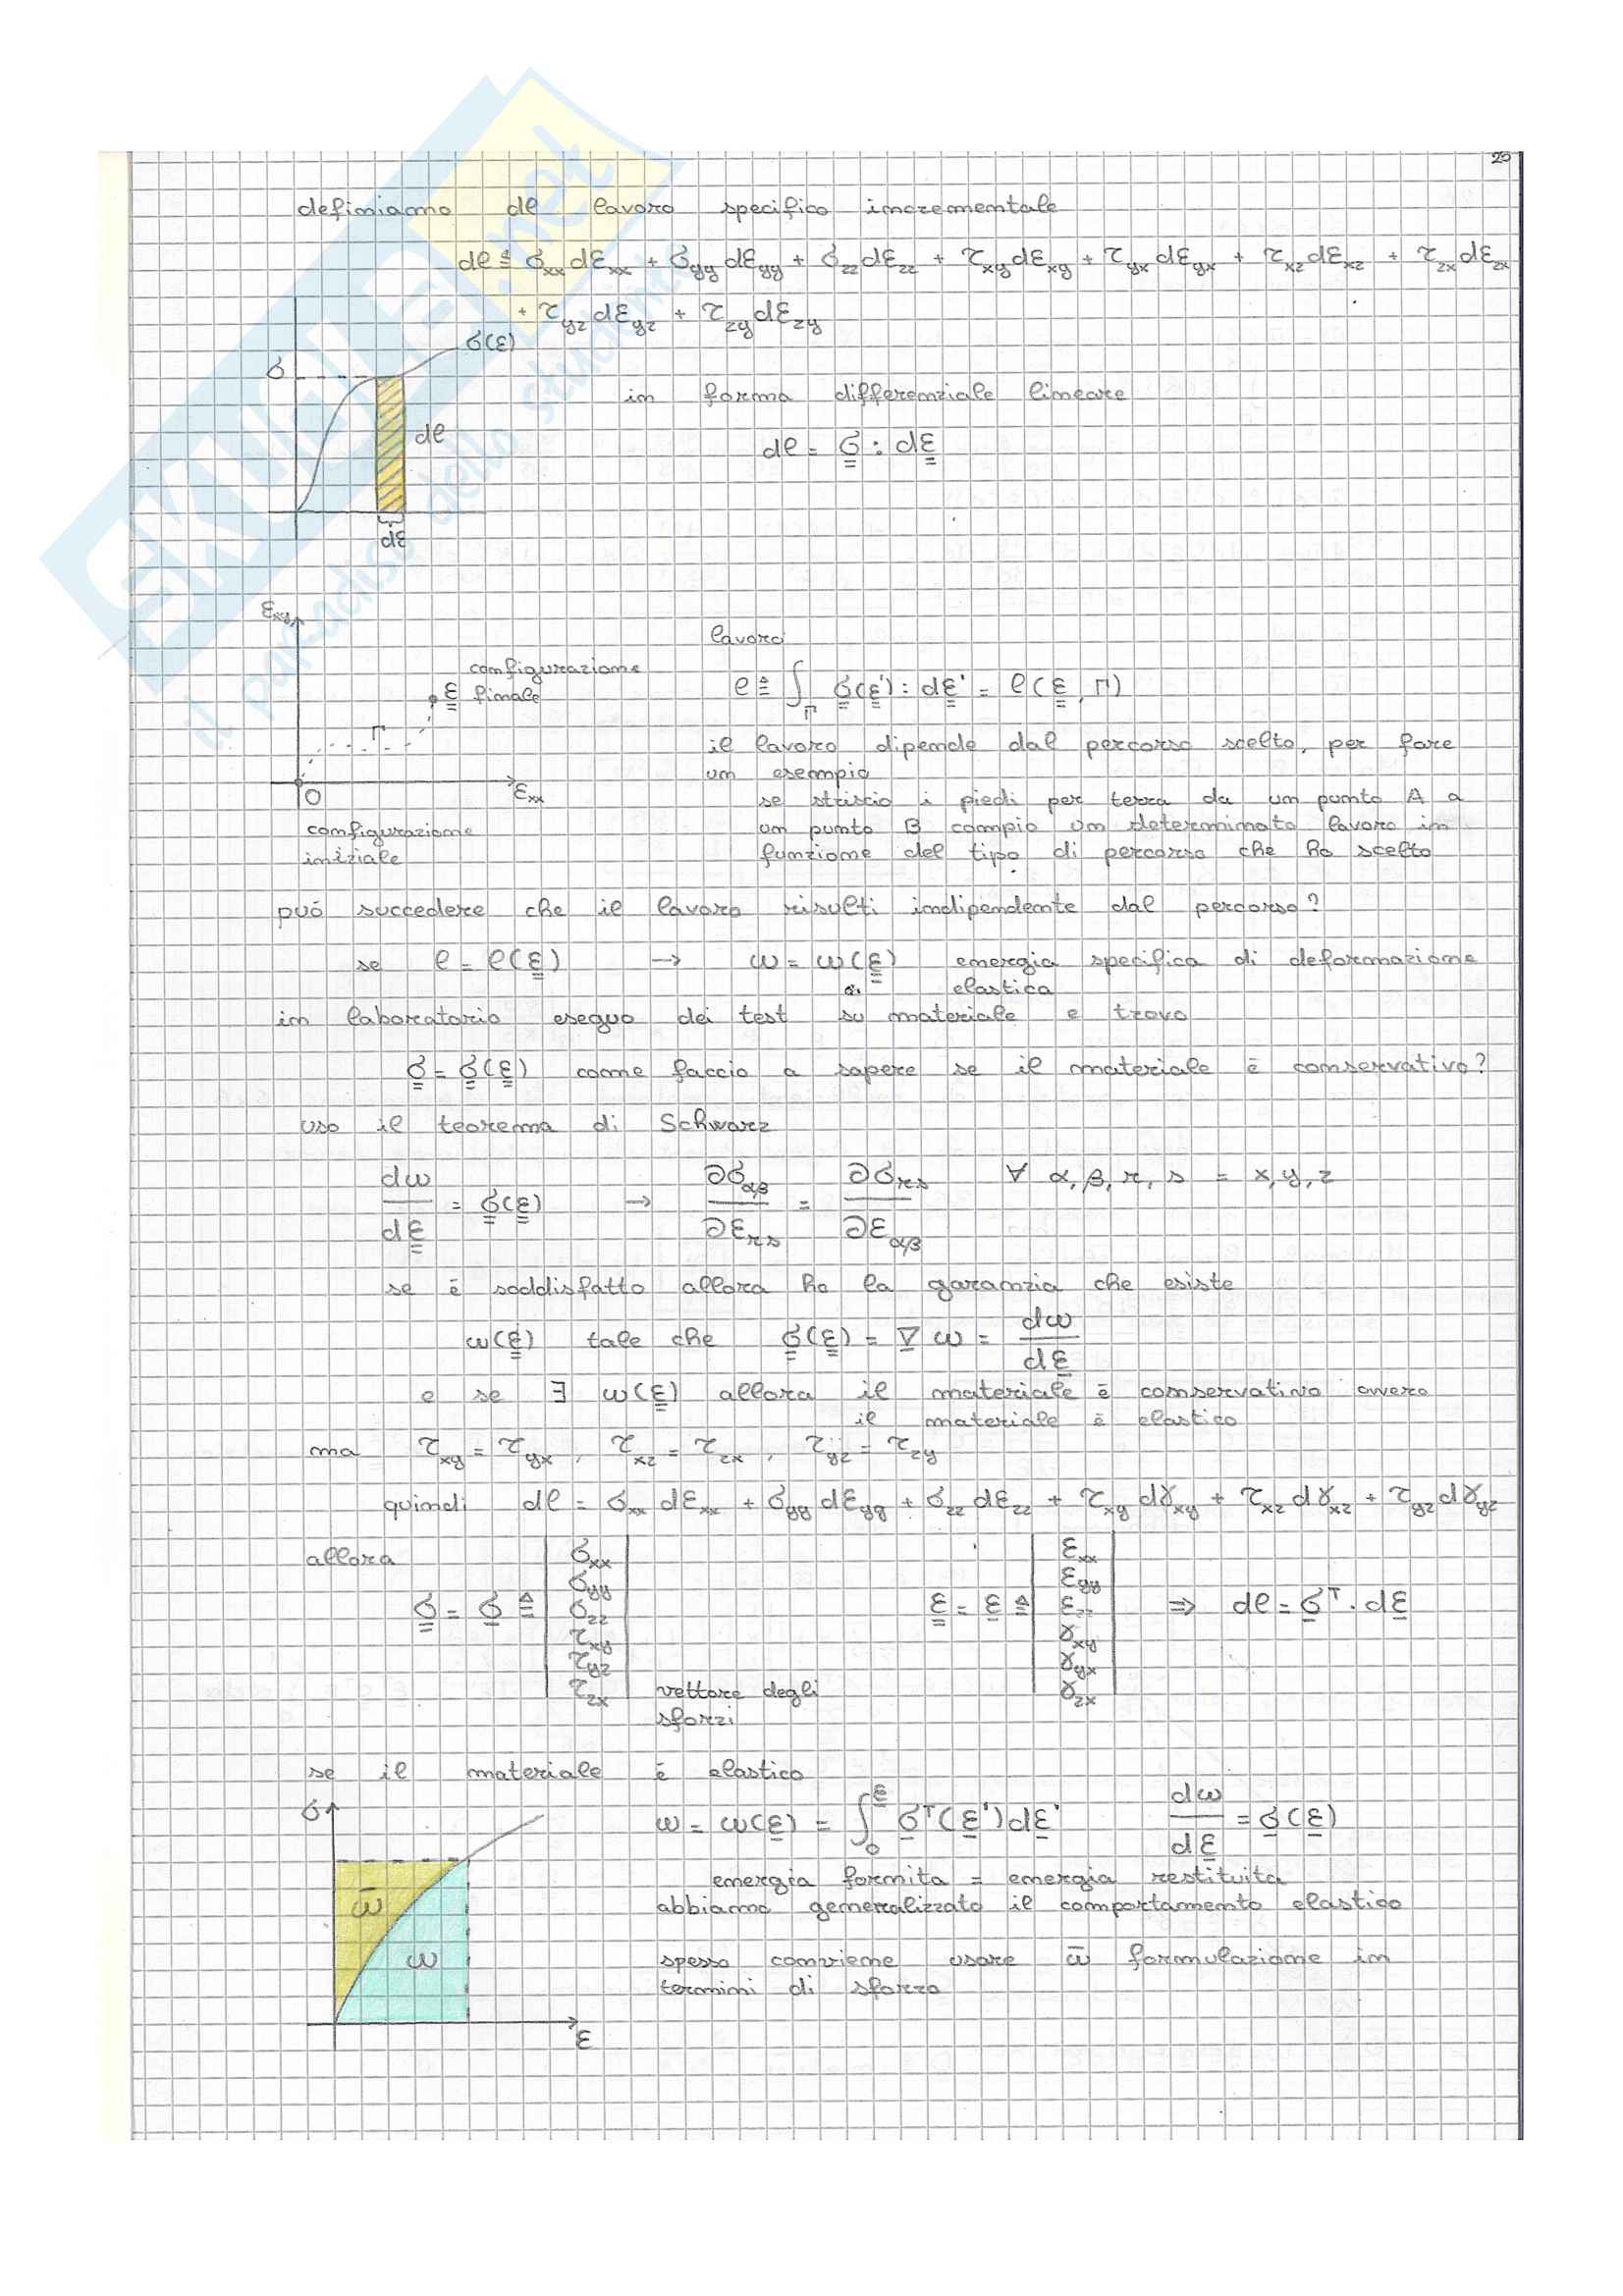 20
definiamo dl lavoro specifico incrementale
dl ≙ σxx dεxx + σyy dεyy + σzz dεzz + τxy dεxy + τyx dεyx + τxz dεxz + τzx dεzx
+ τyz dεyz + τzy dεzy
σ(ε)
σ
in forma differenziale lineare
dl
dl = σ : dε
dε
εxy
lavoro
configurazione
ε finale
l ≙ ∫Γ σ(ε') : dε' = l(ε, Γ)
Γ
il lavoro dipende dal percorso scelto, per fare
un esempio
O
εxx
se striscio i piedi per terra da un punto A a
configurazione
un punto B compio un determinato lavoro in
iniziale
funzione del tipo di percorso che ho scelto
può succedere che il lavoro risulti indipendente dal percorso?
se l = l(ε) → ω = ω(ε) energia specifica di deformazione
elastica
in laboratorio eseguo dei test su materiale e trovo
σ = σ(ε) come faccio a sapere se il materiale è conservativo?
uso il teorema di Schwarz
dω/dε = σ(ε) → ∂σαβ/∂εrs = ∂σrs/∂εαβ ∀ α, β, r, s = x, y, z
se è soddisfatto allora ho la garanzia che esiste
ω(ε) tale che σ(ε) = ∇ω = dω/dε
e se ∃ ω(ε) allora il materiale è conservativo ovvero
il materiale è elastico
ma τxy = τyx , τxz = τzx , τyz = τzy
quindi dl = σxx dεxx + σyy dεyy + σzz dεzz + τxy dγxy + τxz dγxz + τyz dγyz
allora
σ = σ ≙ | σxx σyy σzz τxy τyz τzx | ε = ε ≙ | εxx εyy εzz γxy γyx γzx | ⇒ dl = σᵀ · dε
vettore degli
sforzi
se il materiale è elastico
σ
ω = ω(ε) = ∫₀^ε σᵀ(ε') dε' dω/dε = σ(ε)
energia fornita = energia restituita
ω̄
abbiamo generalizzato il comportamento elastico
ω
spesso conviene usare ω̄ formulazione in
termini di sforzo
ε
SKUOLA.net
il paradiso dello studente